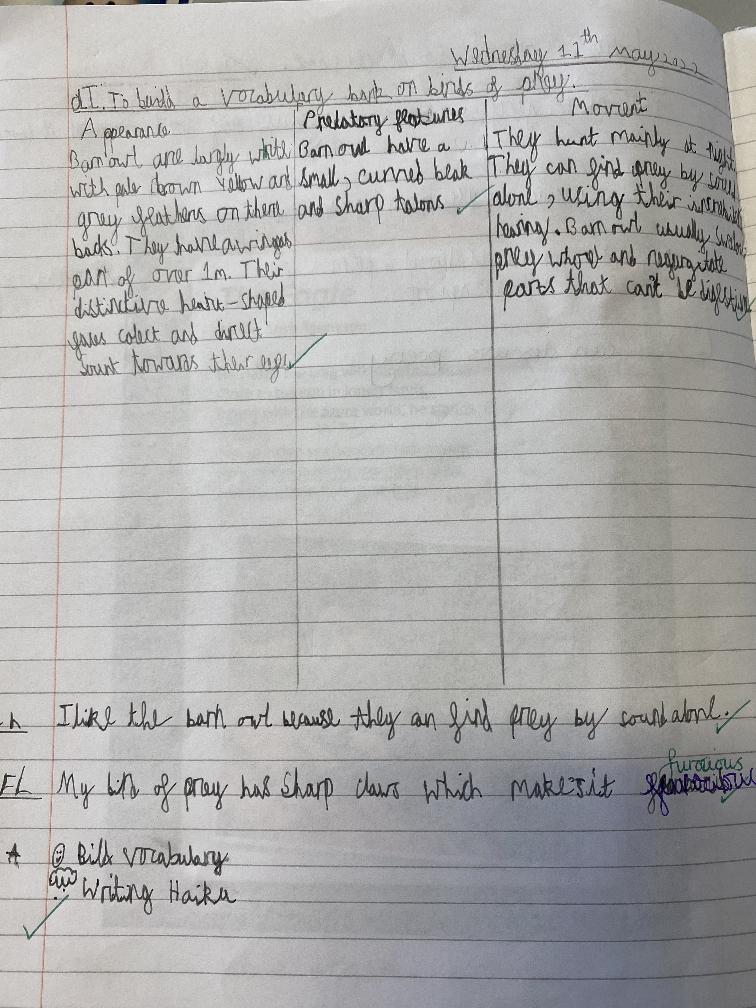 Wednesday 11th May 2022
dI. To build a vocabulary bank on birds of prey.
Appearance
Barn owl are largly white
with pale brown yellow and
grey feathers on there
backs. They have a wings
part of over 1m. Their
distinctive heart-shaped
colect and direct
sount towards their
Predatory features
Barn owl have a
small, curved beak
and sharp talons
Movment
They hunt mainly at night
They can find prey by sound
alone, using their
hearing. Barn owl usually
prey whole and regurgitate
parts that can't be
h I like the barn owl because they can find prey by sound alone.
FL My bird of prey has sharp claws which makes it
furocious
☺ Bild vocabulary
Writing Haiku